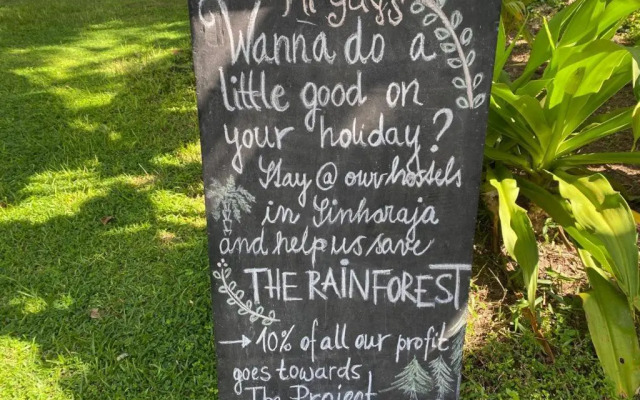 Hi guys
Wanna do a
little good on
your holiday?
Stay @ our hostels
in Sinharaja
and help us save
THE RAINFOREST
→ 10% of all our profit
goes towards
The Project